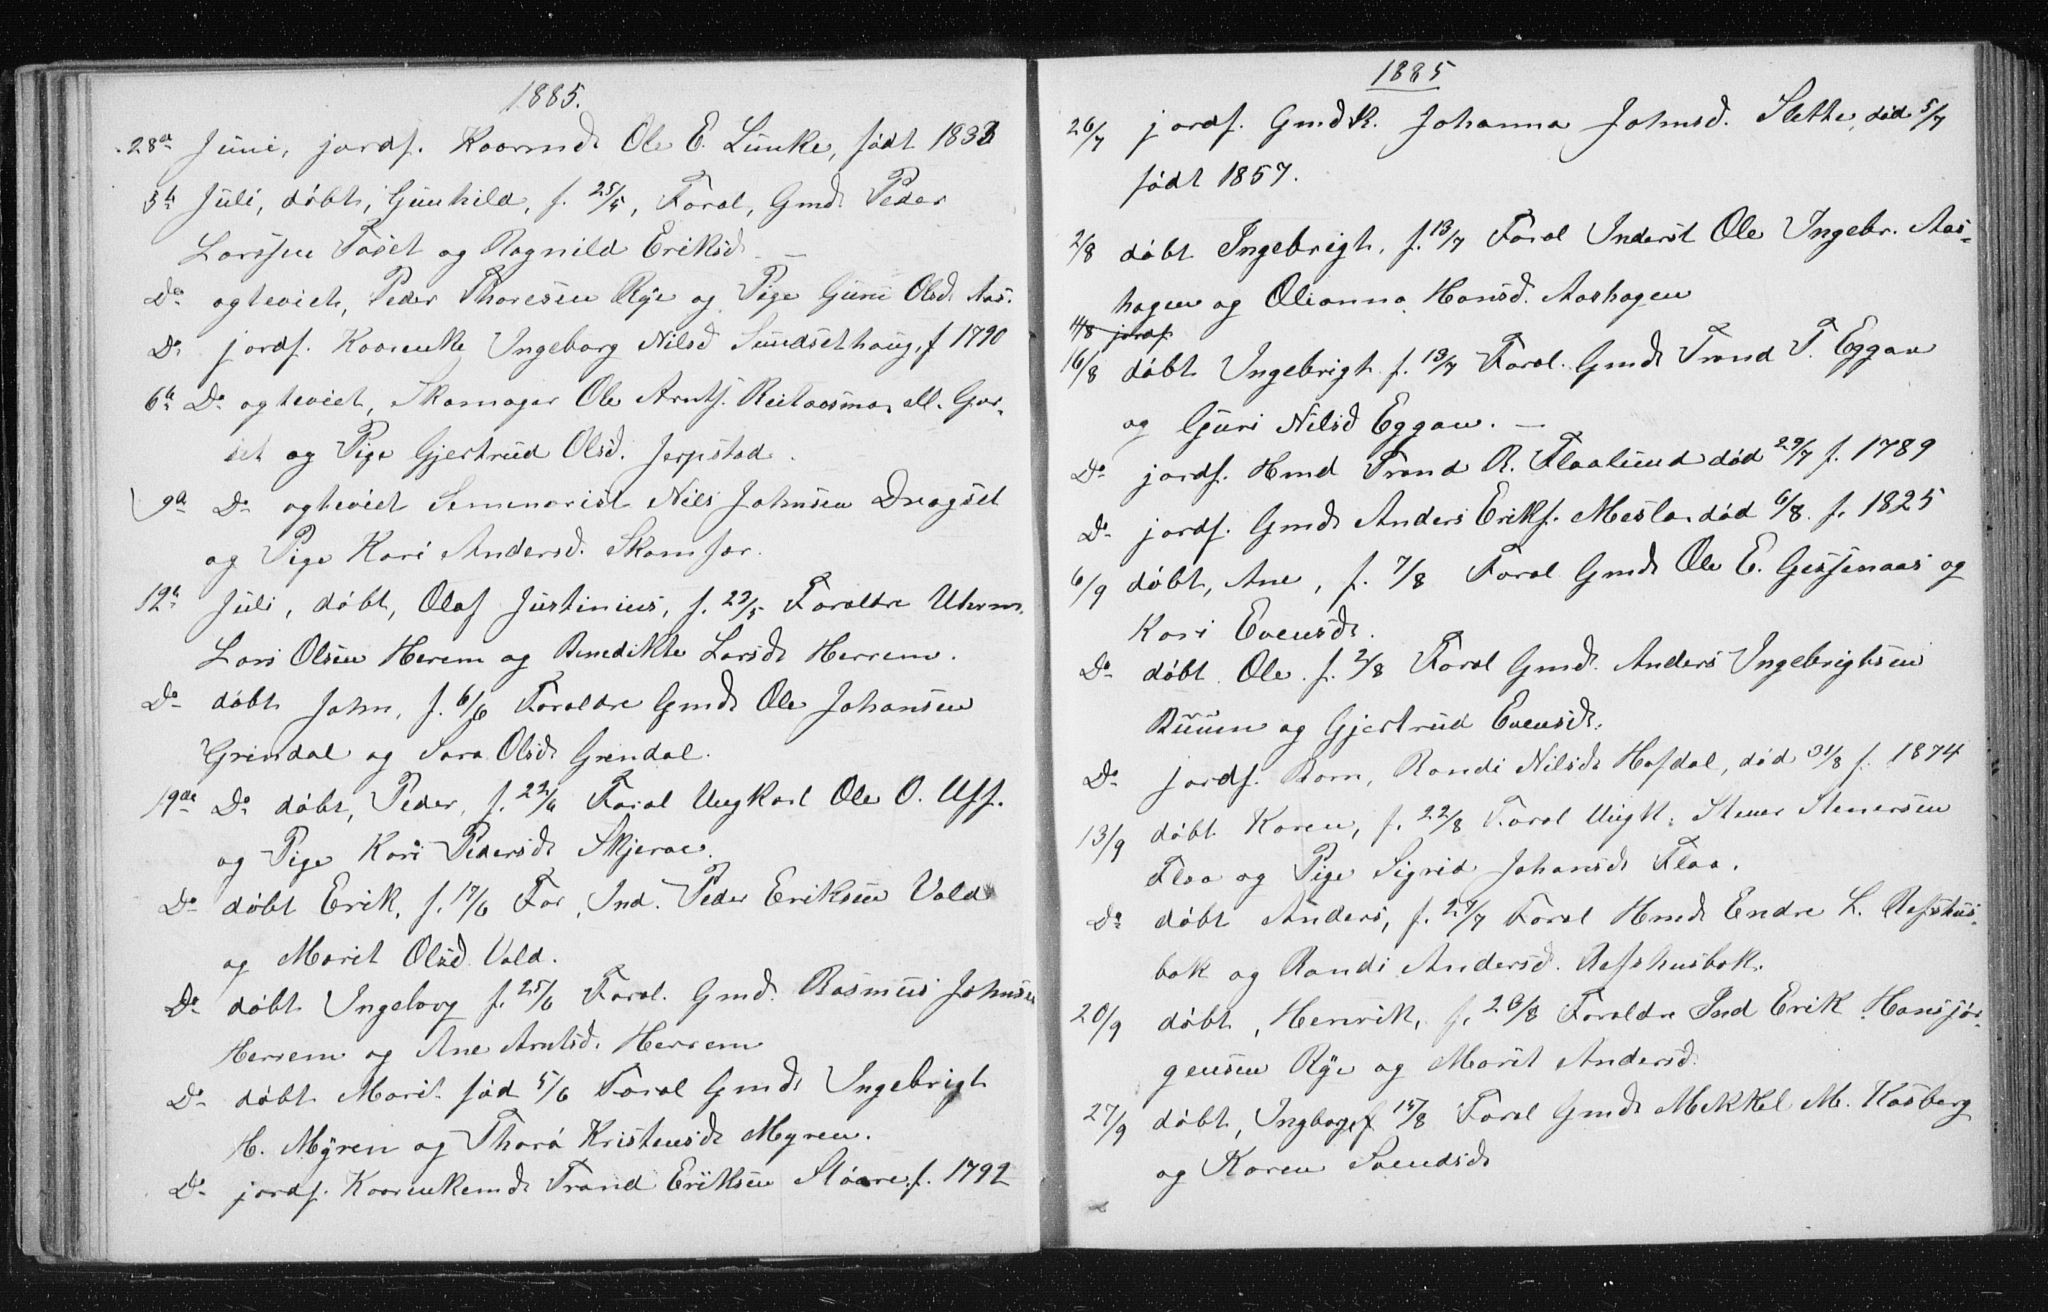 1885.
28de Juni, jordf. Kaarmd. Ole E. Lünke, født 1833
5te Juli, døbt, Gunhild, f. 25/5, Foræl, Gmd. Peder
Larssen Foset og Ragnild Eriksd. —
Do ægteviet, Peder Thoresen Rye og Pige Guri Olsd. Aas.
Do jordf. Kaarenke Ingeborg Nilsd Sundsethaug, f 1790
6te Do ægteviet, Skomager Ole Arnts. Reitaasmo, ell. Gor-
set og Pige Gjertrud Olsd. Jerpstad.
9de Do ægteviet Seminarist Nils Johnsen Dragset
og Pige Kari Andersd. Skamfar.
12te Juli, døbt, Olaf Justinius, f. 23/5 Forældre Uhrm.
Lars Olsen Herem og Benedikte Larsd. Herrem.
Do døbt John, f. 6/6 Forældre Gmd. Ole Johansen
Grindal og Sara Olsd Grendal.
19de Do døbt, Peder, f. 22/6 Foræl Ungkarl Ole O. Uff.
og Pige Kari Pedersd. Skjerae.
Do døbt Erik, f. 17/6 For, Ind. Peder Eriksen Vold
og Marit Olsd. Vold.
Do døbt Ingeborg f. 25/6 Foræl. Gmd. Rasmus Johnsen
Herrem og Ane Arntsd. Herrem
Do døbt Marit fød 5/6 Foræl Gmd. Ingebrigt
H. Myren og Thora Kristensd. Myren.
Do jordf. Kaarenkemd. Trond Eriksen Støare f. 1792
1885
26/7 jordf. Gmdk. Johanna Johnsd. Slette, død 5/7
født 1857.
2/8 døbt Ingebrigt, f. 13/7 Foræl Inderst Ole Ingebr. Aas-
hagen og Olianna Hansd. Aashagen
14/8 jordf.
16/8 døbt Ingebrigt f. 13/7 Foræl. Gmd. Trond T. Eggan
og Guri Nilsd Eggan. —
Do jordf. Hmd Trond R. Flaalund død 29/7 f. 1789
Do jordf. Gmd. Anders Eriks. Mesla død 6/8. f. 1825
6/9 døbt, Ane, f. 7/8 Foræl Gmd. Ole E. Gissinaas og
Kari Evensd.
Do døbt Ole f. 2/8 Foræl Gmd. Anders Ingebrigtsen
Buum og Gjertrud Evensd.
Do jordf. Barn, Randi Nilsd. Hofdal, død 31/8 f. 1874
13/9 døbt Karen, f. 22/8 Foræl Ungk. Stener Stenersen
Flaa og Pige Sigrid Johansd. Flaa.
Do døbt Anders, f. 29/7 Foræl Hmd. Endre L. Refshus-
bak og Randi Andersd. Refshusbak.
20/9 døbt, Henrik, f. 26/8 Forældre Ind Erik Hansjør-
gensen Rye og Marit Andersd.
27/9 døbt, Ingborg f 15/8 Foræl Gmd. Mekkel M. Kasberg
og Karen Svendsd.